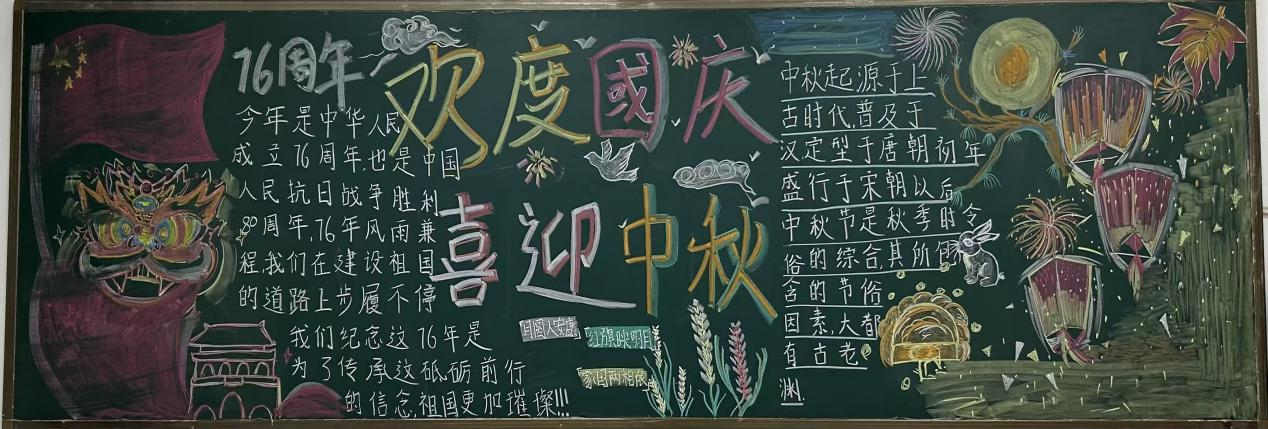 76周年
今年是中华人民
成立76周年,也是中国
人民抗日战争胜利
80周年,76年风雨兼
程,我们在建设祖国
的道路上步履不停
我们纪念这76年是
为了传承这砥砺前行
的信念,祖国更加璀璨!!!
欢度國庆
喜迎中秋
月圆人安康
红旗映明月
家国两相依
中秋起源于上
古时代,普及于
汉定型于唐朝初年
盛行于宋朝以后
中秋节是秋季时令
俗的综合,其所
含的节俗
因素,大都
有古老
渊